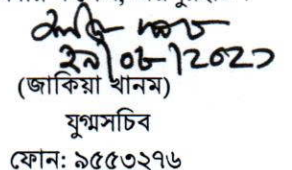 ২৯/০৮/২০২১
(জাকিয়া খানম)
যুগ্মসচিব
ফোন: ৯৫৫৩২৭৬